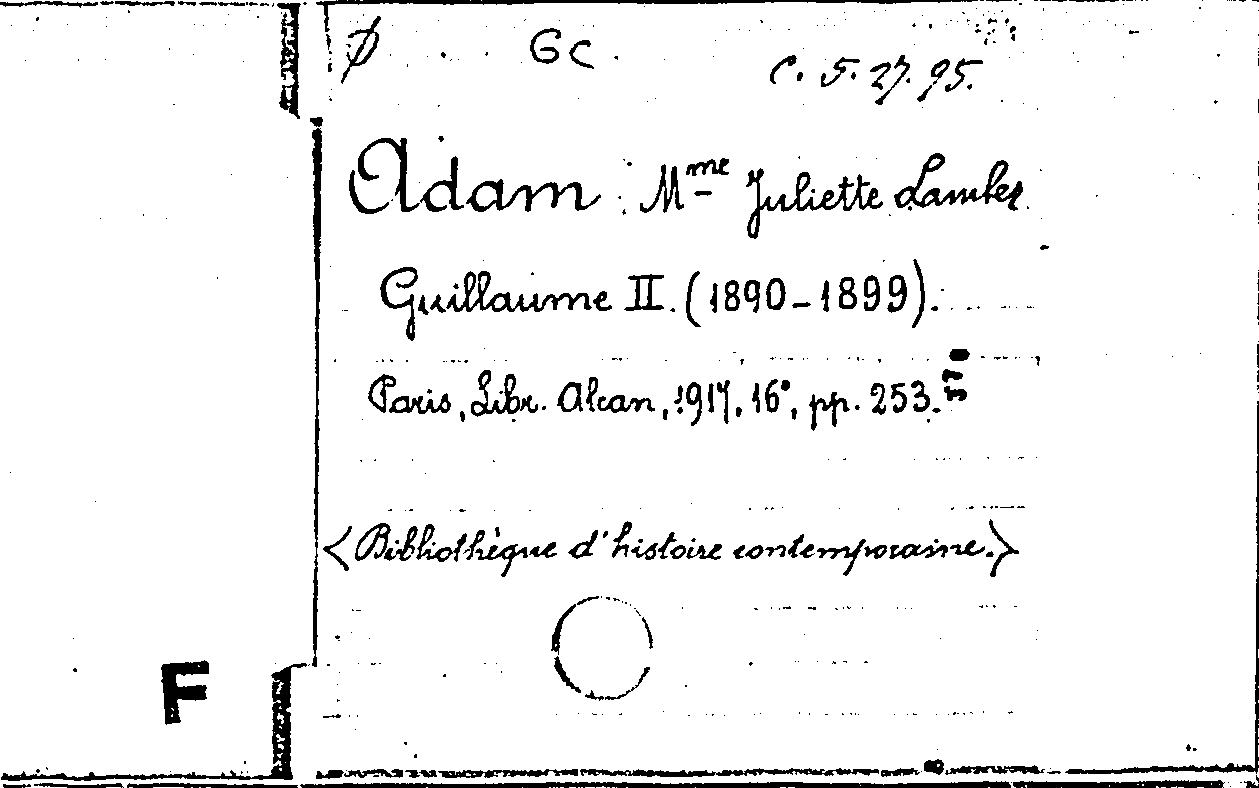 Ø GC.
C. 5. 27. 95.
Adam. Mme Juliette Lamber
Guillaume II. (1890-1899).
Paris, Libr. Alcan, 1917, 16°, pp. 253.
<Bibliothèque d'histoire contemporaine.>
F